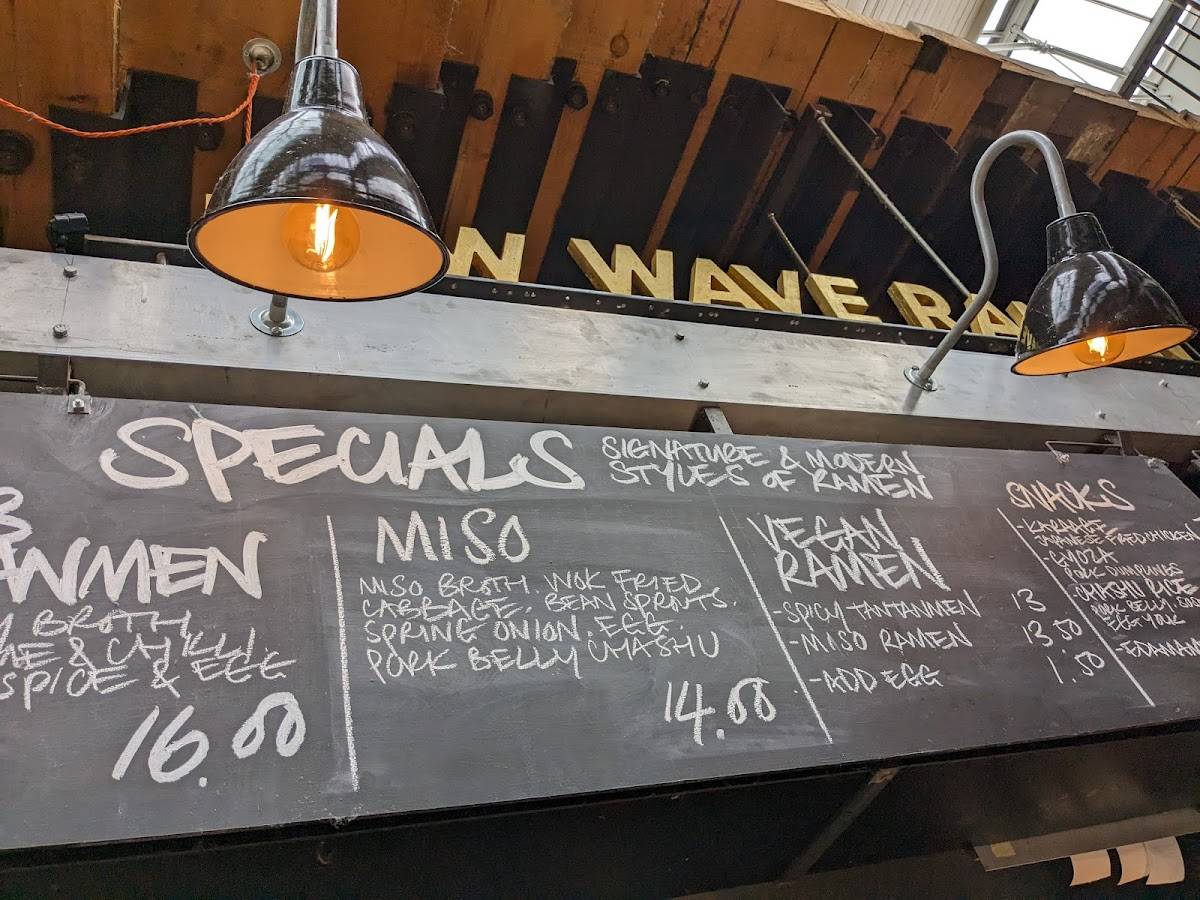 N WAVE RA
SPECIALS
SIGNATURE & MODERN
STYLES OF RAMEN
ANMEN
BROTH
& CHILLI
SPICE & EGG
16.00
MISO
MISO BROTH. WOK FRIED
CABBAGE. BEAN SPROTS.
SPRING ONION. EGG.
PORK BELLY CHASHU
14.00
VEGAN
RAMEN
-SPICY TANTANMEN 13
-MISO RAMEN 13.50
-ADD EGG 1.50
SNACKS
-KARAAGE
JAPANESE FRIED CHICKEN
-GYOZA
PORK DUMPLINGS
CHASHU RICE
PORK BELLY.
EGG YOLK
-EDAMAM